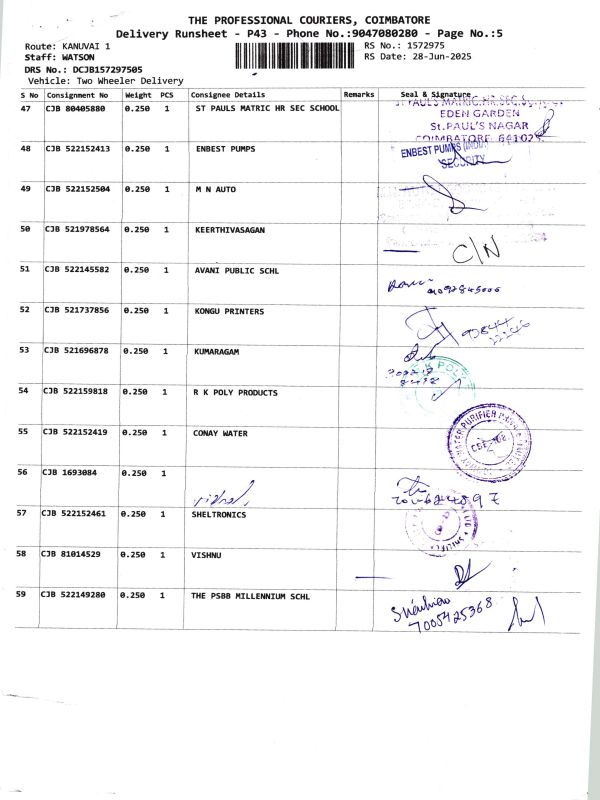 THE PROFESSIONAL COURIERS, COIMBATORE
Delivery Runsheet - P43 - Phone No.:9047080280 - Page No.:5
Route: KANUVAI 1
RS No.: 1572975
Staff: WATSON
RS Date: 28-Jun-2025
DRS No.: DCJB157297505
Vehicle: Two Wheeler Delivery
S No Consignment No Weight PCS Consignee Details Remarks Seal & Signature
47 CJB 80405880 0.250 1 ST PAULS MATRIC HR SEC SCHOOL
ST PAULS MATRIC.HR.SEC.
EDEN GARDEN
St.PAUL'S NAGAR
COIMBATORE
48 CJB 522152413 0.250 1 ENBEST PUMPS
ENBEST PUMPS
SECURITY
49 CJB 522152504 0.250 1 M N AUTO
50 CJB 521978564 0.250 1 KEERTHIVASAGAN
C/N
51 CJB 522145582 0.250 1 AVANI PUBLIC SCHL
52 CJB 521737856 0.250 1 KONGU PRINTERS
53 CJB 521696878 0.250 1 KUMARAGAM
54 CJB 522159818 0.250 1 R K POLY PRODUCTS
K POLY
55 CJB 522152419 0.250 1 CONAY WATER
WATER PURIFIER
56 CJB 1693084 0.250 1
57 CJB 522152461 0.250 1 SHELTRONICS
58 CJB 81014529 0.250 1 VISHNU
59 CJB 522149280 0.250 1 THE PSBB MILLENNIUM SCHL
7005425368